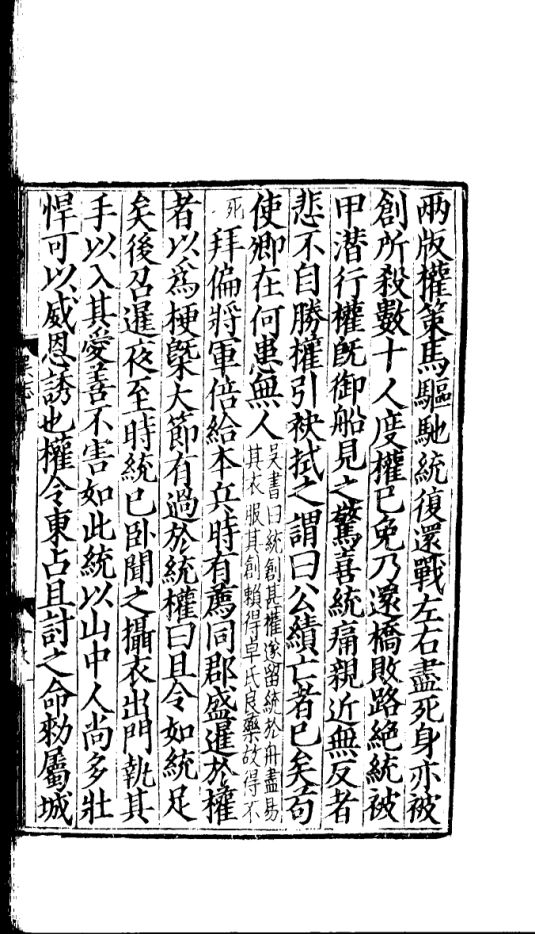 兩版權策馬驅馳統復還戰左右盡死身亦被
創所殺數十人度權已免乃還橋敗路絕統被
甲潜行權旣御船見之驚喜統痛親近無反者
悲不自勝權引袂拭之謂曰公績亡者已矣苟
使卿在何患無人吳書曰統創甚權遂留統於舟盡易
其衣服其創賴得卓氏良藥故得不
死拜偏將軍倍給本兵時有薦同郡盛暹於權
者以爲梗槩大節有過於統權曰且令如統足
矣後召暹夜至時統已卧聞之攝衣出門執其
手以入其愛善不害如此統以山中人尚多壯
悍可以威恩誘也權令東占且討之命勑屬城